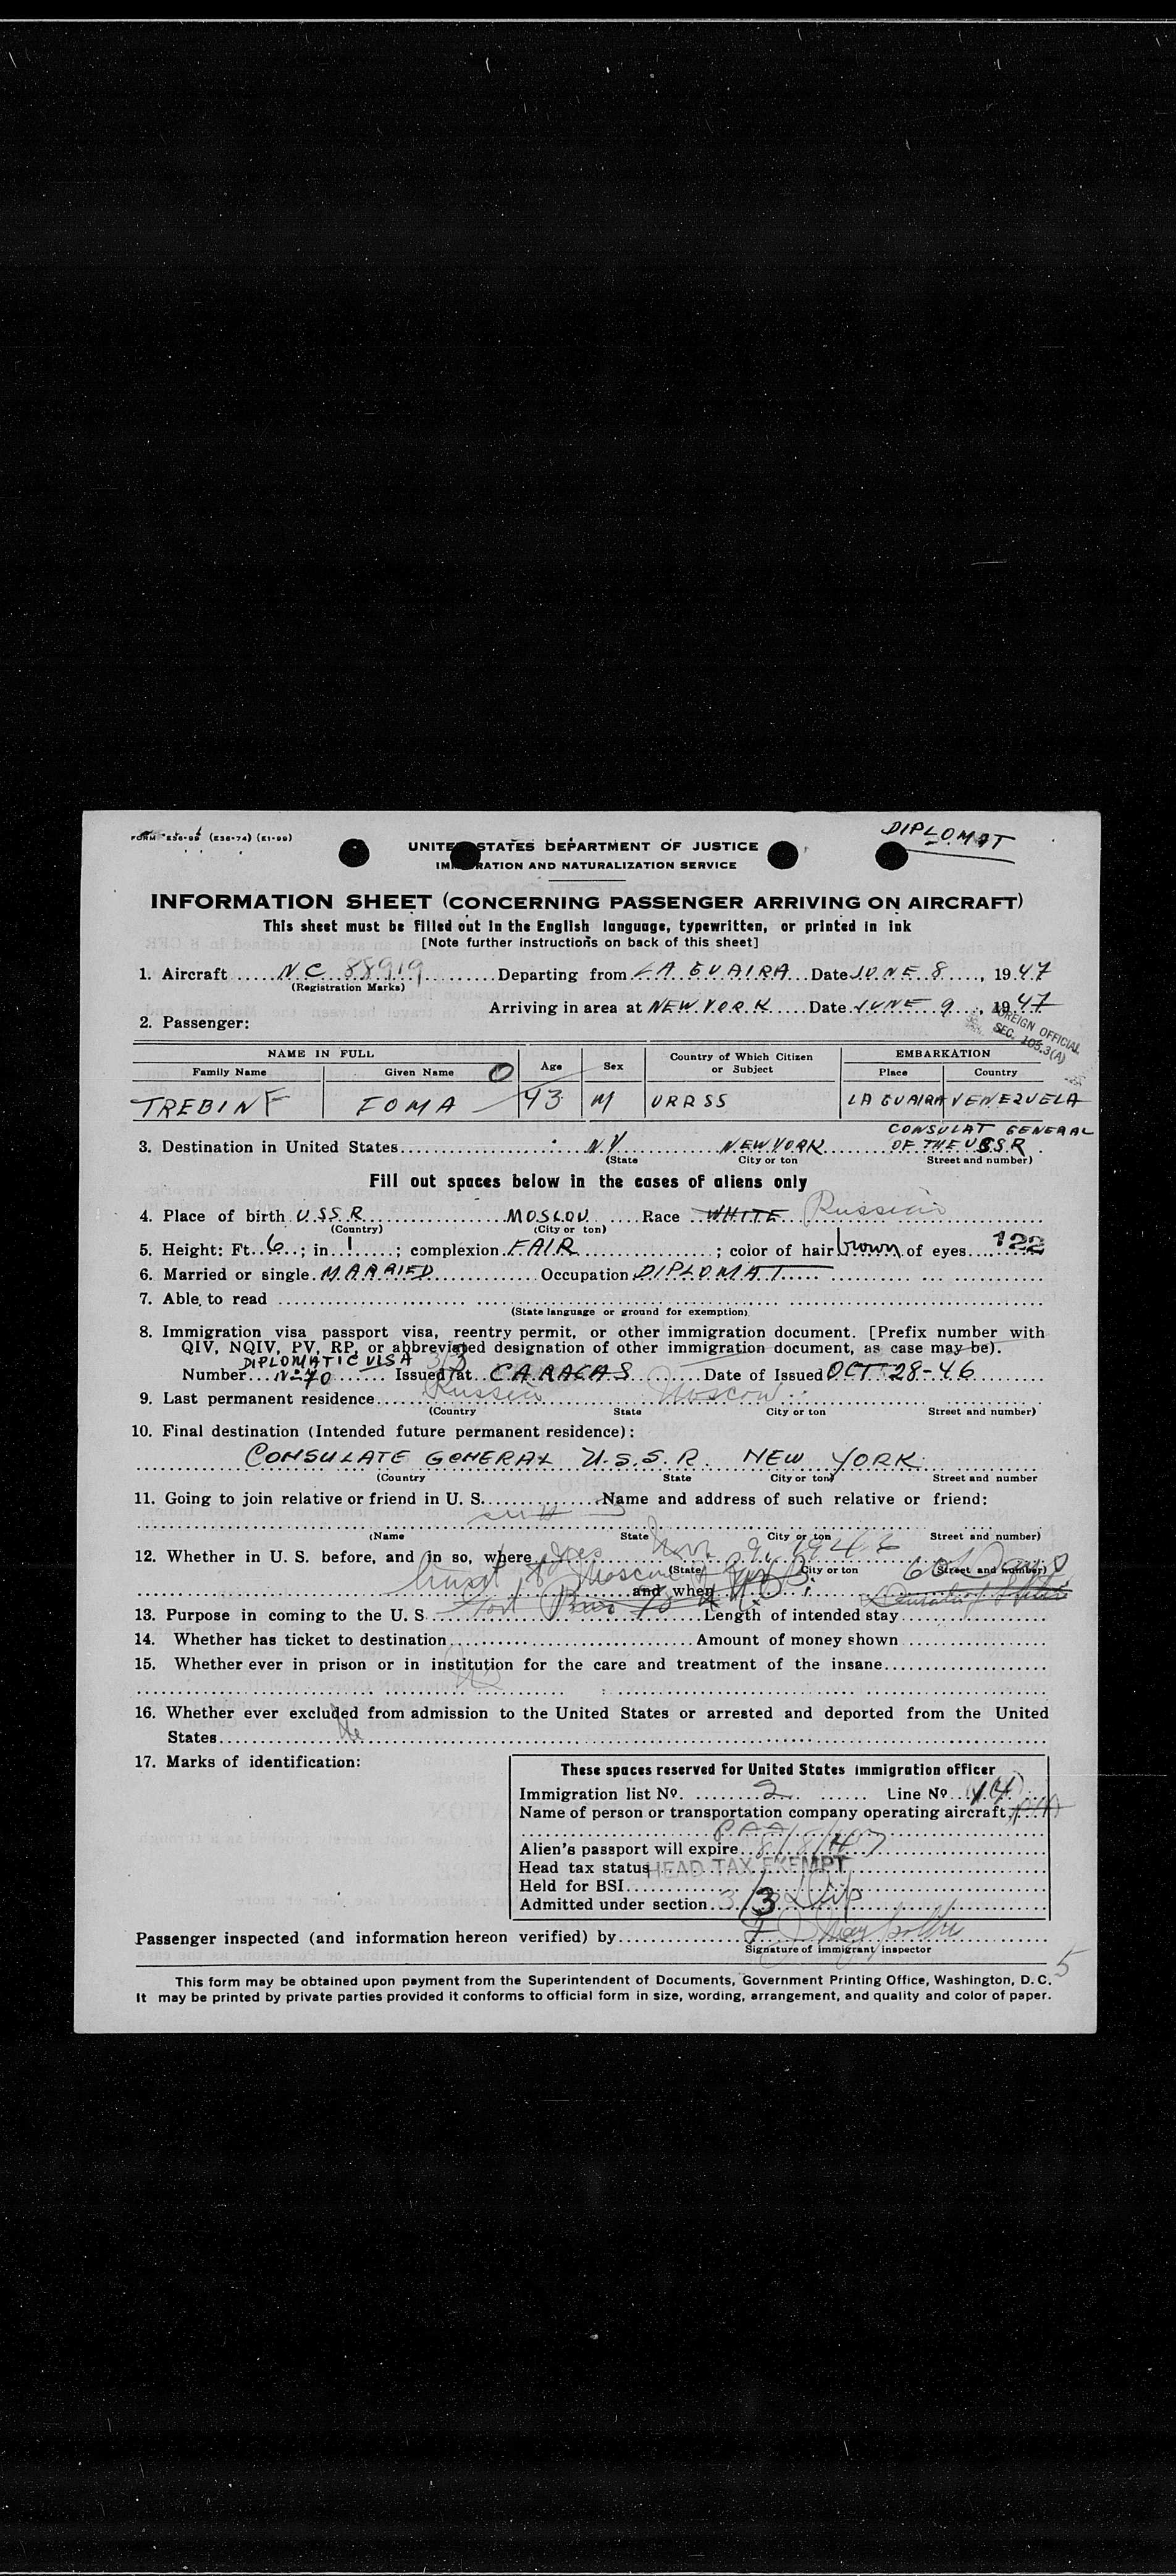 FORM E36-99 (E36-74) (E1-99)
DIPLOMAT
UNITED STATES DEPARTMENT OF JUSTICE
IMMIGRATION AND NATURALIZATION SERVICE
INFORMATION SHEET (CONCERNING PASSENGER ARRIVING ON AIRCRAFT)
This sheet must be filled out in the English language, typewritten, or printed in ink
[Note further instructions on back of this sheet]
1. Aircraft NC 88919 Departing from LA GUAIRA Date JUNE 8, 1947
(Registration Marks)
Arriving in area at NEW YORK Date JUNE 9, 1947
2. Passenger:
FOREIGN OFFICIAL
SEC. 105.3(A)
NAME IN FULL Age Sex Country of Which Citizen or Subject EMBARKATION
Family Name Given Name O Place Country
TREBIN F FOMA 43 M URRSS LA GUAIRA VENEZUELA
CONSULAT GENERAL
3. Destination in United States N.Y. NEW YORK OF THE USSR
(State City or ton Street and number)
Fill out spaces below in the cases of aliens only
4. Place of birth U.S.S.R. MOSCOU Race WHITE Russian
(Country) (City or ton)
5. Height: Ft. 6; in. 1; complexion FAIR; color of hair brown of eyes 122
6. Married or single MARRIED Occupation DIPLOMAT
7. Able to read
(State language or ground for exemption)
8. Immigration visa passport visa, reentry permit, or other immigration document. [Prefix number with
QIV, NQIV, PV, RP, or abbreviated designation of other immigration document, as case may be).
DIPLOMATIC VISA 3/3
Number Nº 70 Issued at CARACAS Date of Issued OCT. 28-46
9. Last permanent residence Russia Moscow
(Country State City or ton Street and number)
10. Final destination (Intended future permanent residence):
CONSULATE GENERAL U.S.S.R. NEW YORK
(Country State City or ton) Street and number
11. Going to join relative or friend in U. S. Name and address of such relative or friend:
(Name State City or ton Street and number)
12. Whether in U. S. before, and in so, where yes Nov. 9, 1946
(State City or ton Street and number)
60 Days
Moscow
and when
13. Purpose in coming to the U. S. Length of intended stay
14. Whether has ticket to destination Amount of money shown
15. Whether ever in prison or in institution for the care and treatment of the insane
No
16. Whether ever excluded from admission to the United States or arrested and deported from the United
States No
17. Marks of identification:
These spaces reserved for United States immigration officer
Immigration list Nº. 2 Line Nº 14
Name of person or transportation company operating aircraft
PAA
Alien's passport will expire 8/8/47
Head tax status HEAD TAX EXEMPT
Held for BSI
Admitted under section 3/3 Dip
Passenger inspected (and information hereon verified) by
Signature of immigrant inspector
5
This form may be obtained upon payment from the Superintendent of Documents, Government Printing Office, Washington, D. C.
It may be printed by private parties provided it conforms to official form in size, wording, arrangement, and quality and color of paper.